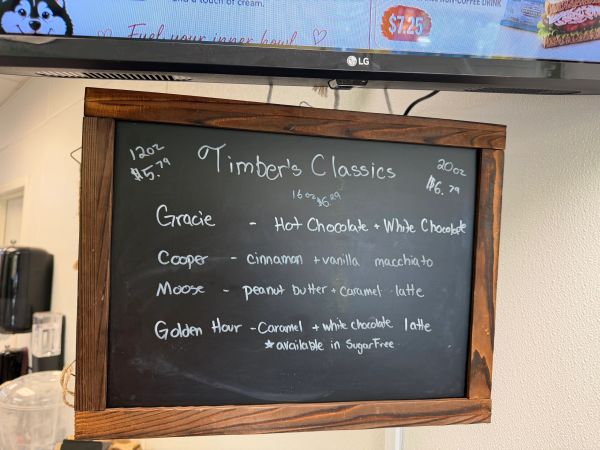 and a touch of cream.
Fuel your inner howl
$7.25
LG
12oz
$5.79
Timber's Classics
20oz
$6.79
16oz $6.29
Gracie - Hot Chocolate + White Chocolate
Cooper - cinnamon + vanilla macchiato
Moose - peanut butter + caramel latte
Golden Hour - Caramel + white chocolate latte
★available in SugarFree